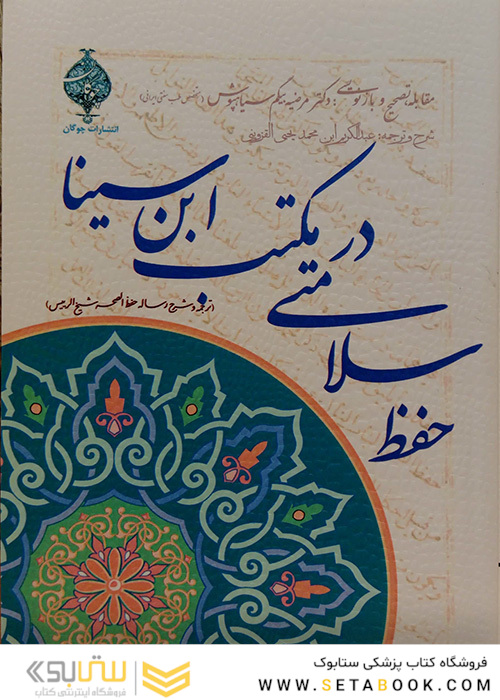 مقابله، تصحیح و بازنوشت: دکتر مرضیه بیگم سیاهپوش (متخصص طب سنتی ایرانی)
شرح و ترجمه: عبدالکریم ابن محمد یحیی القزوینی
انتشارات چوگان
حفظ سلامتی در مکتب ابن سینا
(ترجمه و شرح رساله حفظ الصحه شیخ الرئیس)
ستابوک
فروشگاه اینترنتی کتاب
فروشگاه کتاب پزشکی ستابوک
WWW.SETABOOK.COM